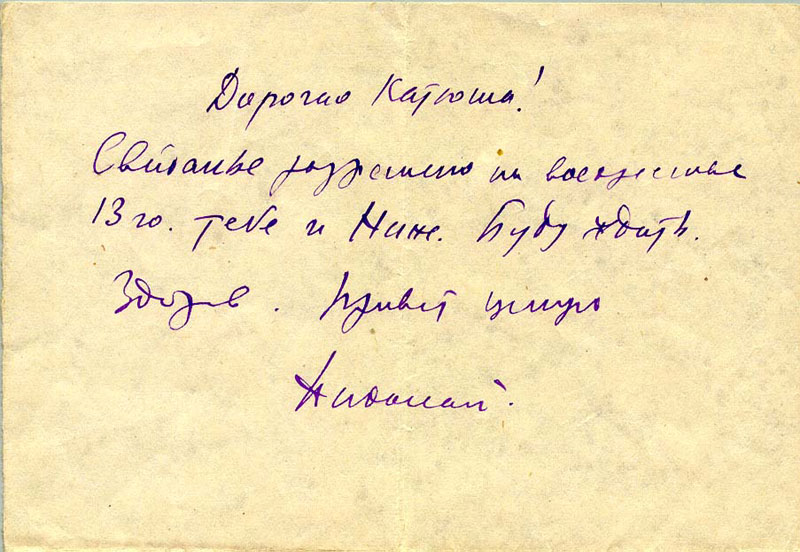 Дорогая Катюша!
Свиданье разрешено на воскресенье
13го. тебе и Нине. Буду ждать.
Здоров. Привет целую
Николай.